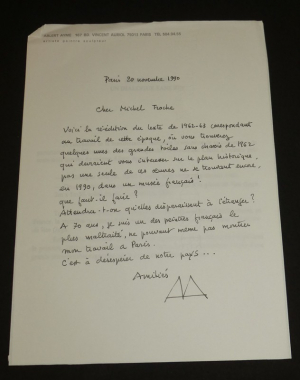 Paris 20 novembre 1990
Cher Michel Troche
Voici la réédition du texte de 1962-63 correspondant
au travail de cette époque, où vous trouverez
quelques unes des grandes toiles sans châssis de 1962
qui devraient vous intéresser sur le plan historique,
pas une seule de ces œuvres ne se trouvant encore,
en 1990, dans un musée français !
que faut-il faire ?
Attendra-t-on qu'elles disparaissent à l'étranger ?
A 70 ans, je suis un des peintres français le
plus maltraité, ne pouvant même pas montrer
mon travail à Paris.
C'est à désespérer de notre pays...
Amitiés